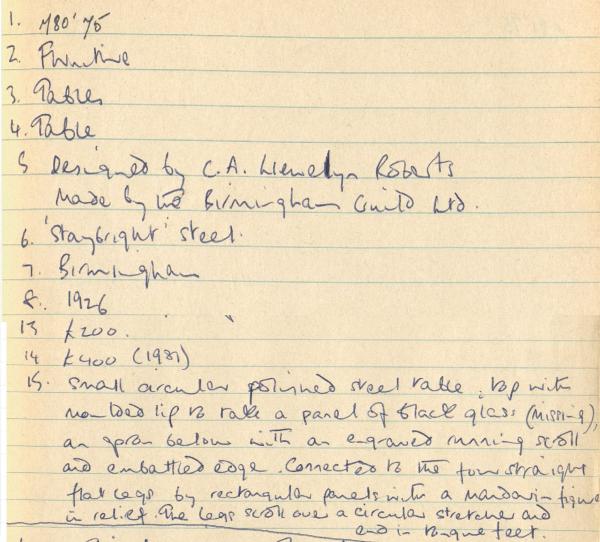 1. M80'75
2. Furniture
3. Tables
4. Table
5 Designed by C.A. Llewelyn Roberts
Made by the Birmingham Guild Ltd.
6. 'Staybright' steel.
7. Birmingham
8. 1926
13 £200.
14 £400 (1981)
15. Small circular polished steel table, top with
moulded lip to take a panel of black glass (missing),
an apron below with an engraved running scroll
and embattled edge. Connected to the four straight
flat legs by rectangular panels with a mandarin figure
in relief. The legs scroll over a circular stretcher and
end in tongue feet.